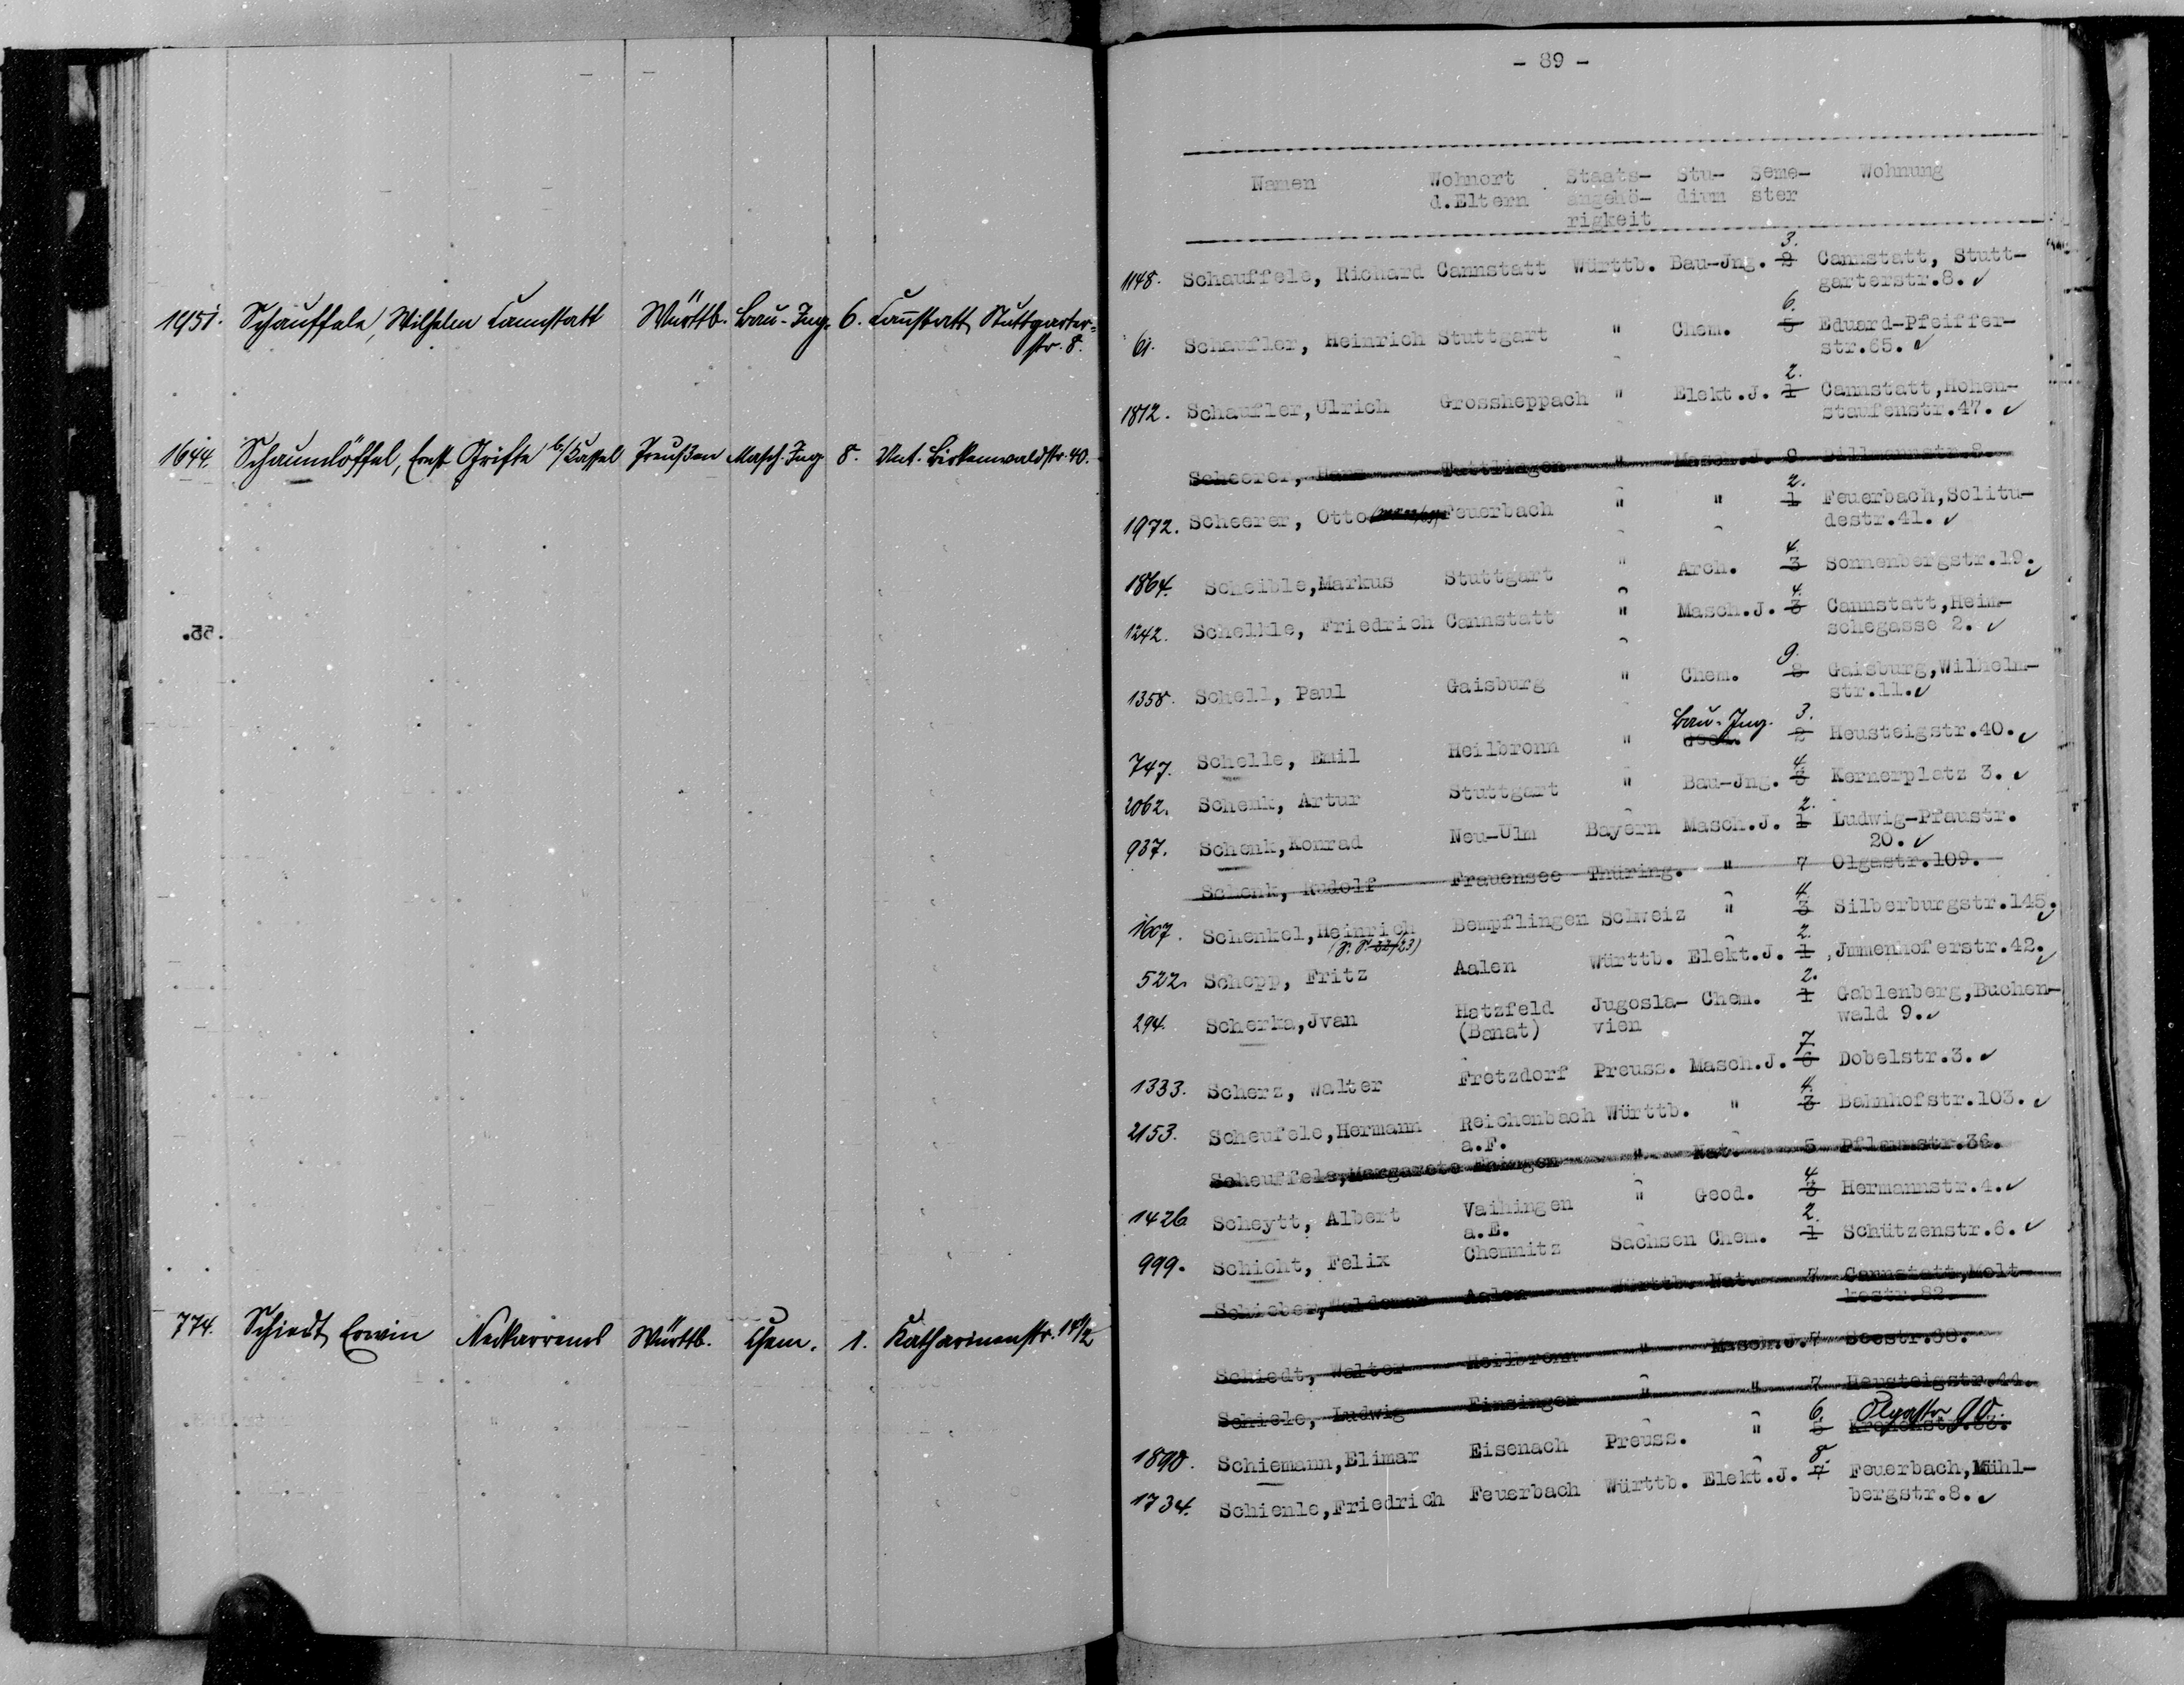 1951. Schauffele, Wilhelm Cannstatt Württb. Bau-Ing. 6. Cannstatt, Stuttgarter-
str. 8.
1644. Schaumlöffel, Ernst Grifte b/Kassel Preußen Masch.-Ing. 8. Unt. Birkenwaldstr. 40.
774. Schiedt, Erwin Neckarrems Württb. Chem. 1. Katharinenstr. 14 1/2
- 89 -
Namen Wohnort Staats- Stu- Seme- Wohnung
d.Eltern angehö- dium ster
rigkeit
3.
1148. Schauffele, Richard Cannstatt Württb. Bau-Jng. 2 Cannstatt, Stutt-
garterstr.8.
6.
61. Schaufler, Heinrich Stuttgart " Chem. 5 Eduard-Pfeiffer-
str.65.
2.
1872. Schaufler,Ulrich Grossheppach " Elekt.J. 1 Cannstatt,Hohen-
staufenstr.47.
Scheerer, Hans Tuttlingen " Masch.J. 9 Billmannstr.8.
2.
1972. Scheerer, Otto Feuerbach " " 1 Feuerbach,Solitu-
destr.41.
4.
1864. Scheible,Markus Stuttgart " Arch. 3 Sonnenbergstr.19.
4.
1242. Schelkle, Friedrich Cannstatt " Masch.J. 3 Cannstatt,Heim-
schegasse 2.
9.
1358. Schell, Paul Gaisburg " Chem. 8 Gaisburg,Wilhelm-
str.11.
Bau-Ing. 3.
747. Schelle, Emil Heilbronn " Geod. 2 Heusteigstr.40.
4.
2062. Schenk, Artur Stuttgart " Bau-Jng. 3 Kernerplatz 3.
2.
937. Schenk,Konrad Neu-Ulm Bayern Masch.J. 1 Ludwig-Pfaustr.
20.
Schenk, Rudolf Frauensee Thüring. " 7 Olgastr.109.
4.
1607. Schenkel,Heinrich Bempflingen Schweiz " 3 Silberburgstr.145.
2.
522. Schepp, Fritz Aalen Württb. Elekt.J. 1 Jmmenhoferstr.42.
2.
294. Scherka,Jvan Hatzfeld Jugosla- Chem. 1 Gablenberg,Buchen-
(Banat) vien wald 9.
7.
1333. Scherz, Walter Fretzdorf Preuss. Masch.J. 6 Dobelstr.3.
4.
2153. Scheufele,Hermann Reichenbach Württb. " 3 Bahnhofstr.103.
a.F.
Scheuffele,Margarete Ehingen " Nat. 5 Pflaumstr.36.
4
1426 Scheytt, Albert Vaihingen " Geod. 3 Hermannstr.4.
a.E.
2.
999. Schicht, Felix Chemnitz Sachsen Chem. 1 Schützenstr.6.
Schieber,Waldemar Aalen Württb. Nat. 7 Cannstatt,Molt-
kestr.82.
Schiedt, Walter Heilbronn " Masch.J. 7 Seestr.68.
Schiele, Ludwig Einsingen " " 7 Heusteigstr.44.
6. Olgastr 90.
1890. Schiemann,Elimar Eisenach Preuss. " 5
8.
1734. Schienle,Friedrich Feuerbach Württb. Elekt.J. 7 Feuerbach,Mühl-
bergstr.8.